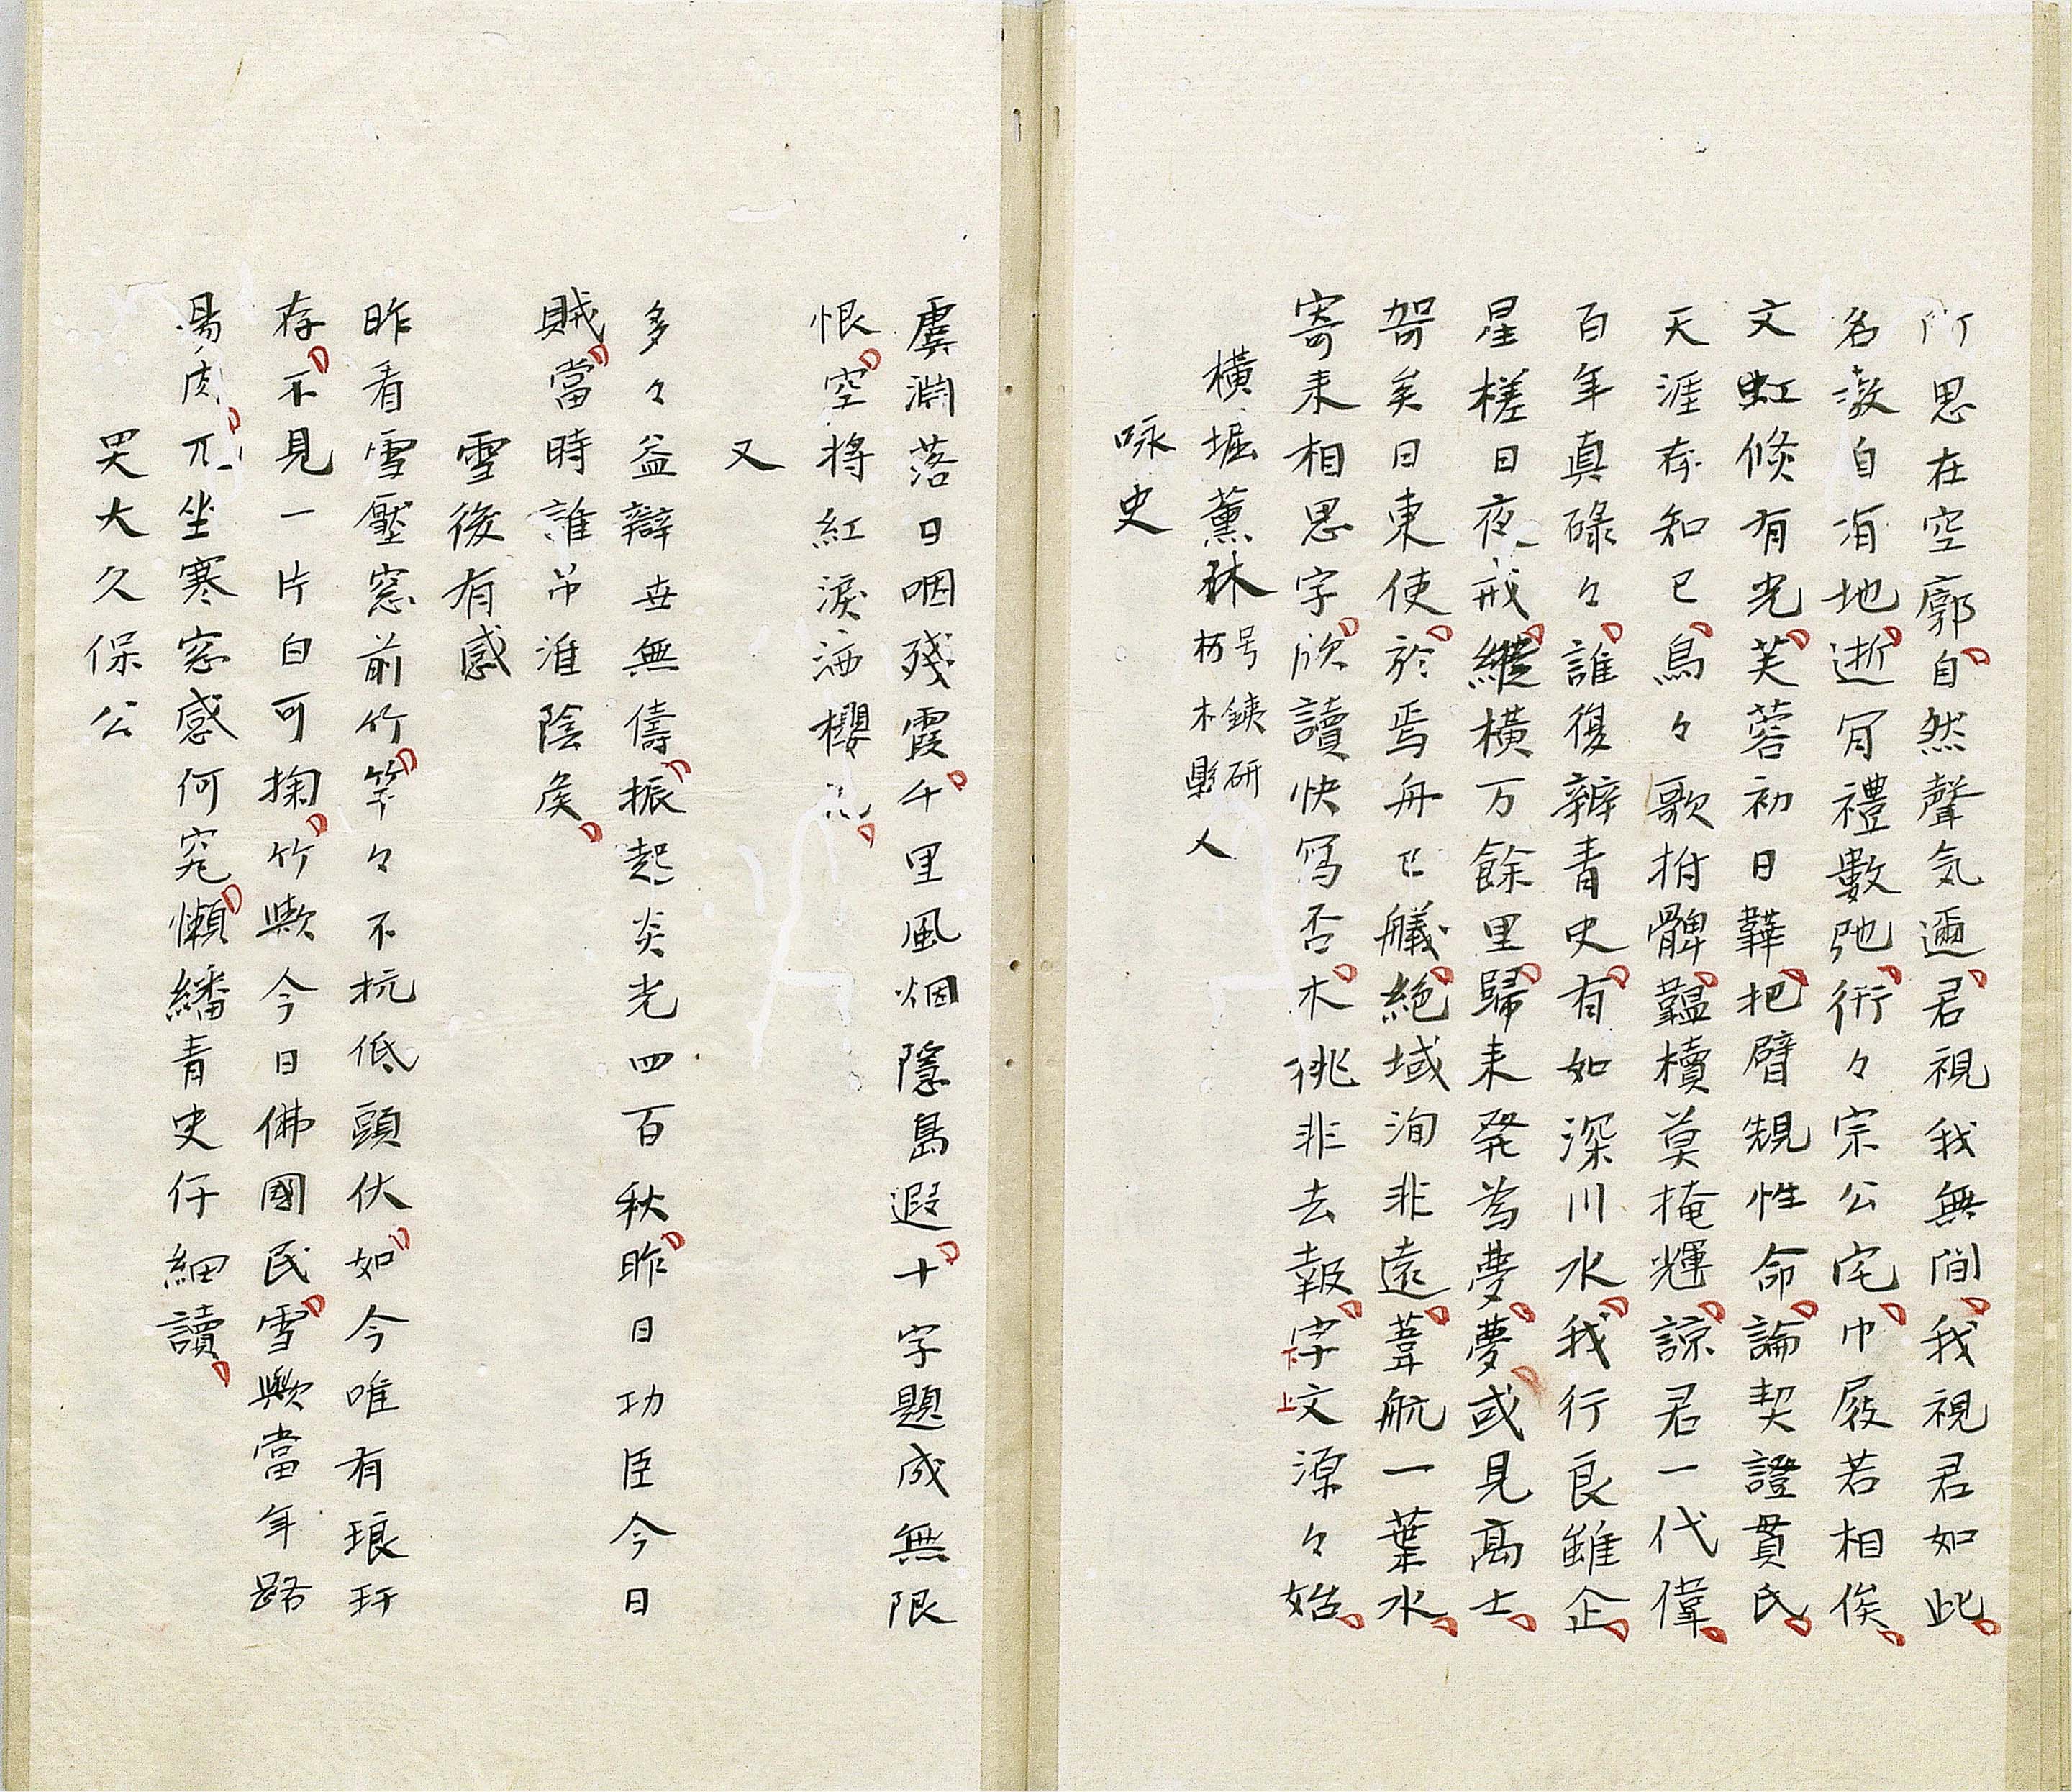 所思在空廓自然聲気通君視我無間我視君如此
名激自有地逝冐禮數弛衎々宗公宅巾屐若相俟
文虹倏有光芙蓉初日韡把臂規性命論契證貫氏
天涯存知已烏々歌拊髀韞櫝莫掩輝諒君一代偉
百年真碌々誰復辨青史有如深川水我行良雖企
星槎日夜戒縱橫万餘里歸来発為夢夢或見高士
哿矣日東使於焉舟已艤絕域洵非遠葦航一葉水
寄来相思字欣讀快寫否木桃非去報字文源々始
橫堀薰林号鉄研枴木累人
咏史
虞淵落日咽殘霞千里風烟隱島遐十字題成無限
恨空将紅淚洒櫻花
又
多々益辯世無儔振起炎光四百秋昨日功臣今日
賊當時誰吊淮陰矦
雪後有感
昨看雪壓窓前竹竿々不抗低頭伏如今唯有琅玕
存不見一片白可掬竹歟今日佛國民雪歟當年路
易肉兀坐寒窓感何窮懶繙青史仔細讀
哭大久保公